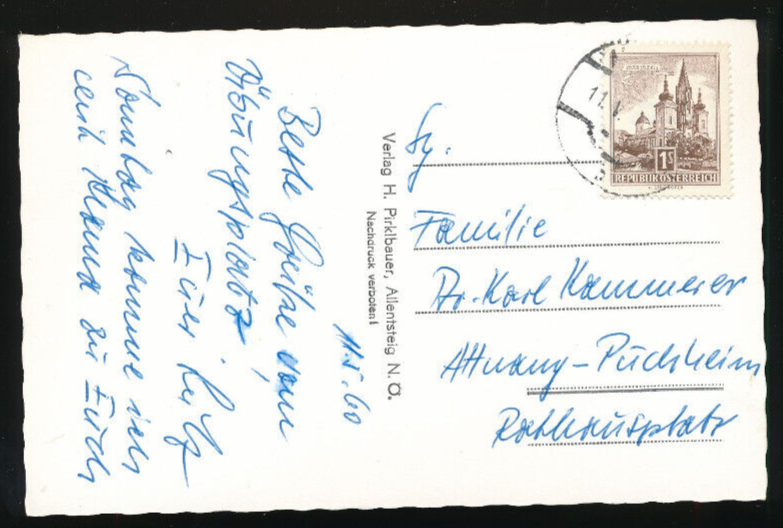 11.5.60
Beste Grüße vom
Übungsplatz
Euer
Sonntag komme ich
mit Mama zu Euch
Verlag H. Pirklbauer, Allentsteig N. Ö.
Nachdruck verboten!
1S
REPUBLIK ÖSTERREICH
11.
Familie
Dr. Karl Kammerer
Attnang-Puchheim
Rathausplatz